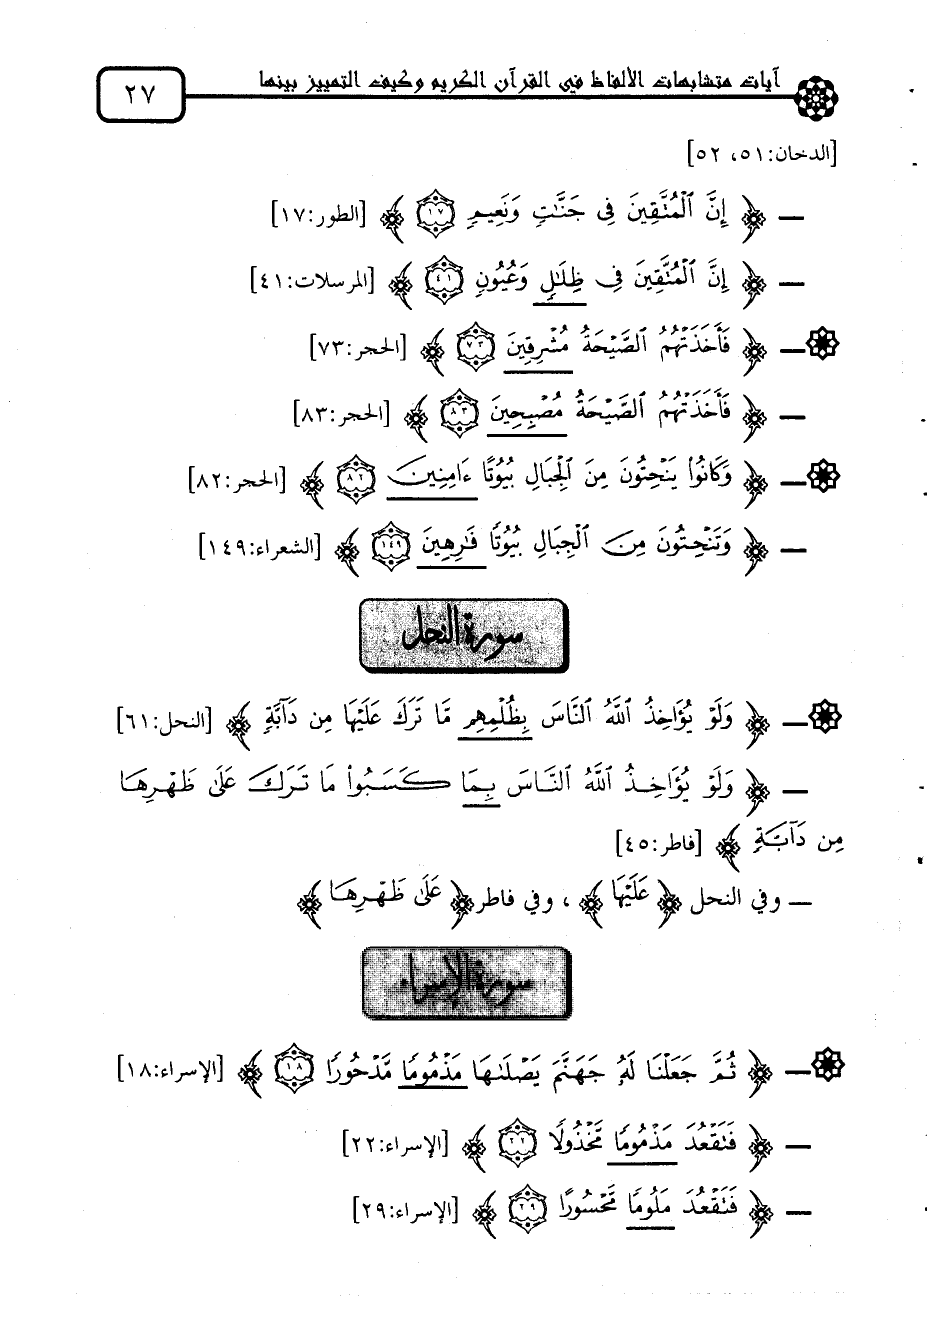 آيات متشابهات الألفاظ في القرآن الكريم وكيف التمييز بينها
٢٧
[الدخان:٥١، ٥٢]
— ﴿ إِنَّ ٱلْمُتَّقِينَ فِى جَنَّٰتٍ وَنَعِيمٍ ١٧ ﴾ [الطور:١٧]
— ﴿ إِنَّ ٱلْمُتَّقِينَ فِى ظِلَٰلٍ وَعُيُونٍ ٤١ ﴾ [المرسلات:٤١]
— ﴿ فَأَخَذَتْهُمُ ٱلصَّيْحَةُ مُشْرِقِينَ ٧٣ ﴾ [الحجر:٧٣]
— ﴿ فَأَخَذَتْهُمُ ٱلصَّيْحَةُ مُصْبِحِينَ ٨٣ ﴾ [الحجر:٨٣]
— ﴿ وَكَانُوا۟ يَنْحِتُونَ مِنَ ٱلْجِبَالِ بُيُوتًا ءَامِنِينَ ٨٢ ﴾ [الحجر:٨٢]
— ﴿ وَتَنْحِتُونَ مِنَ ٱلْجِبَالِ بُيُوتًا فَٰرِهِينَ ١٤٩ ﴾ [الشعراء:١٤٩]
سورة النحل
— ﴿ وَلَوْ يُؤَاخِذُ ٱللَّهُ ٱلنَّاسَ بِظُلْمِهِم مَّا تَرَكَ عَلَيْهَا مِن دَآبَّةٍ ﴾ [النحل:٦١]
— ﴿ وَلَوْ يُؤَاخِذُ ٱللَّهُ ٱلنَّاسَ بِمَا كَسَبُوا۟ مَا تَرَكَ عَلَىٰ ظَهْرِهَا
مِن دَآبَّةٍ ﴾ [فاطر:٤٥]
— وفي النحل ﴿ عَلَيْهَا ﴾ ، وفي فاطر ﴿ عَلَىٰ ظَهْرِهَا ﴾
سورة الإسراء
— ﴿ ثُمَّ جَعَلْنَا لَهُۥ جَهَنَّمَ يَصْلَىٰهَا مَذْمُومًا مَّدْحُورًا ١٨ ﴾ [الإسراء:١٨]
— ﴿ فَتَقْعُدَ مَذْمُومًا مَّخْذُولًا ٢٢ ﴾ [الإسراء:٢٢]
— ﴿ فَتَقْعُدَ مَلُومًا مَّحْسُورًا ٢٩ ﴾ [الإسراء:٢٩]